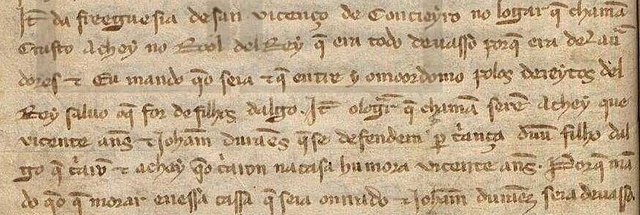 It̃ da freeguesia de san vicenço de Concieyro no logar q̃ chamã
Crasto Achey no Rool del Rey q̃ era todo deuasso porq̃ era de
dores ⁊ Eu mando q̃o seia ⁊ q̃ entre y omoordomo polos dereytos del
Rey saluo oq̃ for de filhos dalgo. It̃ ologar q̃ chamã Achey que
vicente añs ⁊ Johañ durães q̃se defendem p̃ dũu filho dal
go q̃ ⁊ achey q̃o na casa hu mora vicente añs. Porq̃ mã
do q̃o q̃ morar enessa cassa q̃ seia onrrado ⁊ Johañ durães sera deuassa